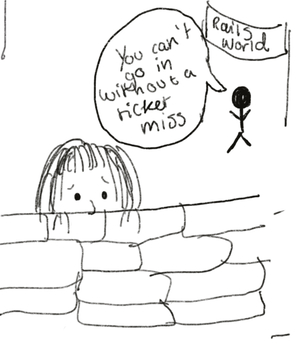 Rails
World
You can't
go in
without a
ticket
miss